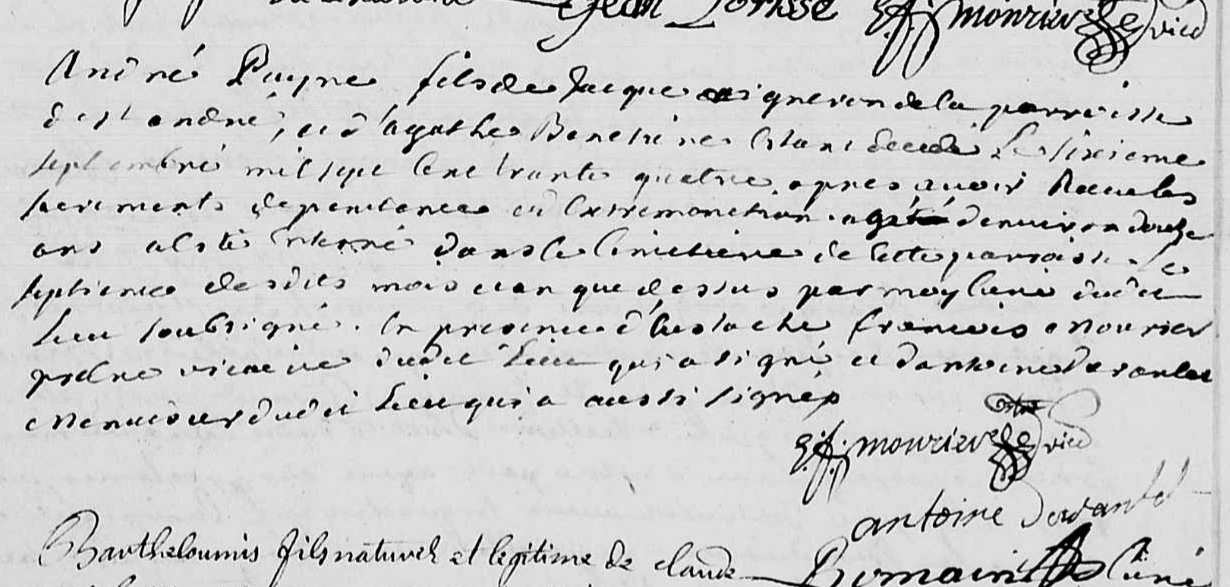 Jean Lorisse E f mourier vic
André Payne fils de Jacque vigneron de la parroisse
de st andré, et d'agathe Bonchine Estant decedé Le sixieme
septembre mil sept Cent trante quatre, apres avoir Receu les
sacrements de penitence et d'Extremonction agé denviron douze
ans a esté Interré dans le Cimetiere de Cette paroisse Le
septieme desdits mois et an que dessus par moy Curé dudit
Lieu soubsigné. En presence d'Eustache francois mourier
prestre vicaire dudit Lieu qui a signé et d'antoine
menuisier dudit Lieu qui a aussi signé
E f. mourier vic
antoine
Bartheloumis fils naturel et legitime de claude Romain Curé